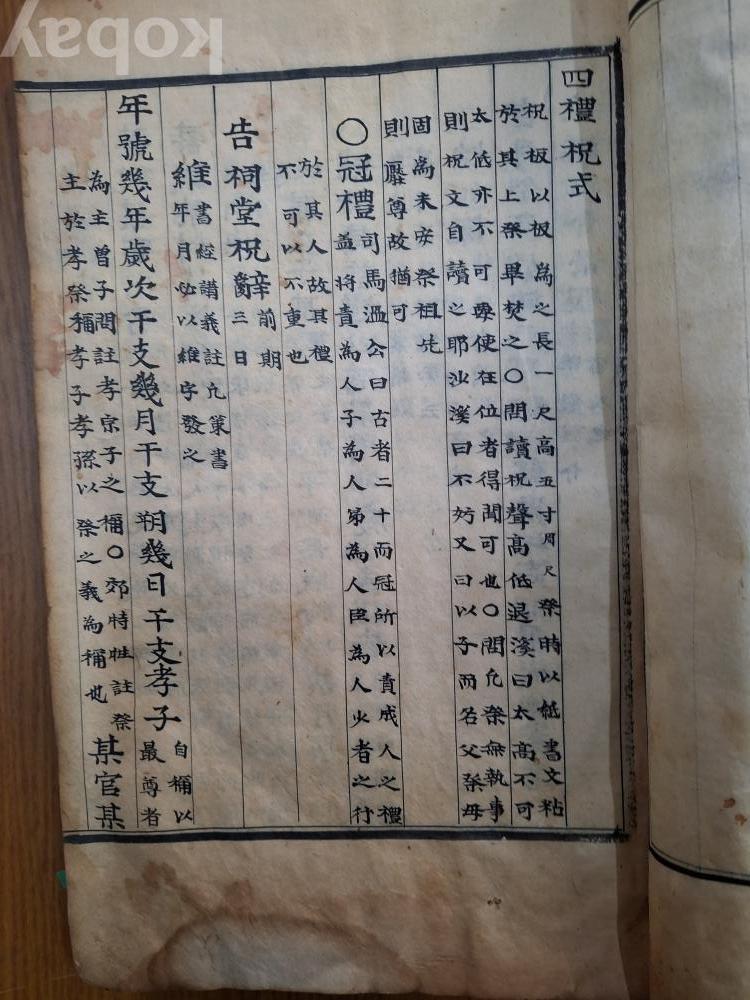 四禮祝式
祝板以板為之長一尺高五寸周尺祭時以紙書文粘
於其上祭畢焚之○問讀祝聲高低退溪曰太高不可
太低亦不可要使在位者得聞可也○問凡祭無執事
則祝文自讀之耶沙溪曰不妨又曰以子而名父祭母
固為未安祭祖先
則壓尊故猶可
○冠禮
司馬溫公曰古者二十而冠所以責成人之禮
蓋將責為人子為人弟為人臣為人少者之行
於其人故其禮
不可以不重也
告祠堂祝辭
前期
三日
維
書經講義註凡策書
年月必以維字發之
年號幾年歲次干支幾月干支朔幾日干支孝子
自稱以
最尊者
為主曾子問註孝宗子之稱○郊特牲註祭
主於孝祭稱孝子孝孫以祭之義為稱也
某官某
kobay